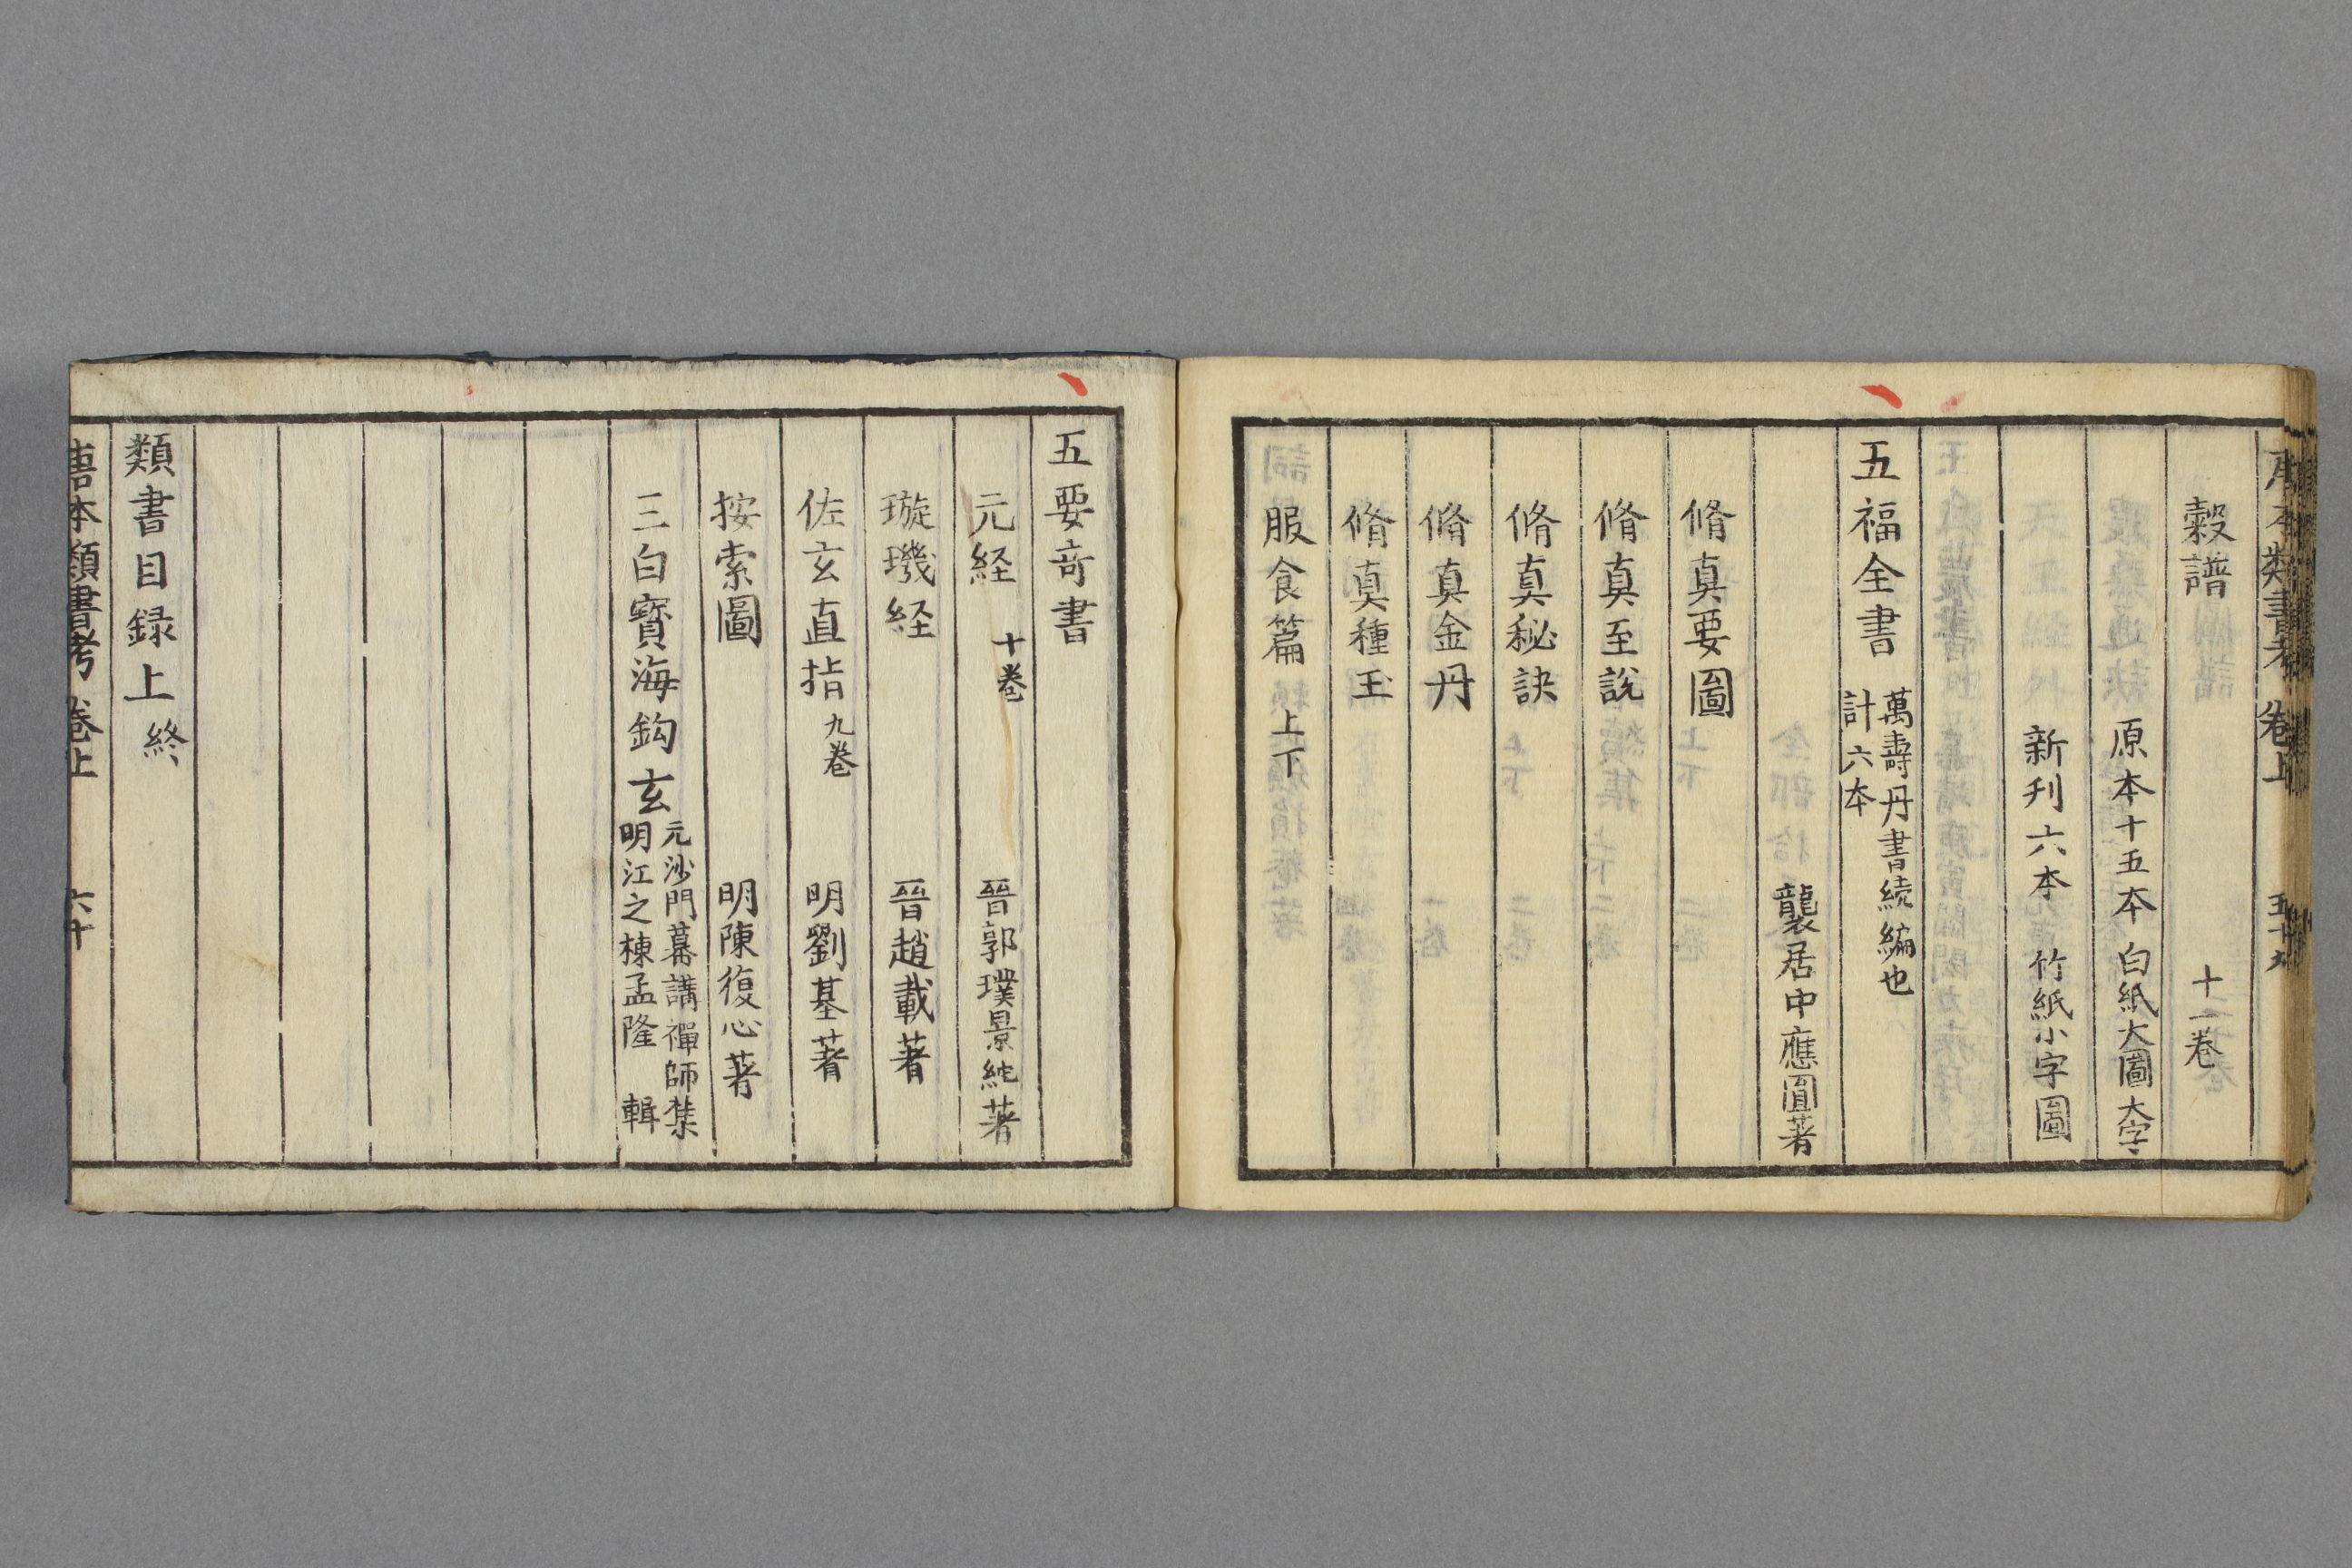 唐本類書考 卷上 五十九
穀譜 十一卷
原本十五本 白紙大圖大字
新刊六本 竹紙小字圖
五福全書 萬壽丹書続編也
計六本
龔居中應圓著
脩真要圖
脩真至説
脩真秘訣
脩真金丹
脩真種玉
服食篇 上下
五要竒書
元経 十卷 晉郭璞景純著
璇璣経 晉趙載著
佐玄直指 九卷 明劉基著
按索圖 明陳復心著
三白寳海鈎玄 元沙門幕講禪師
明江之棟孟隆 輯
類書目録上 終
唐本類書考 卷上 六十